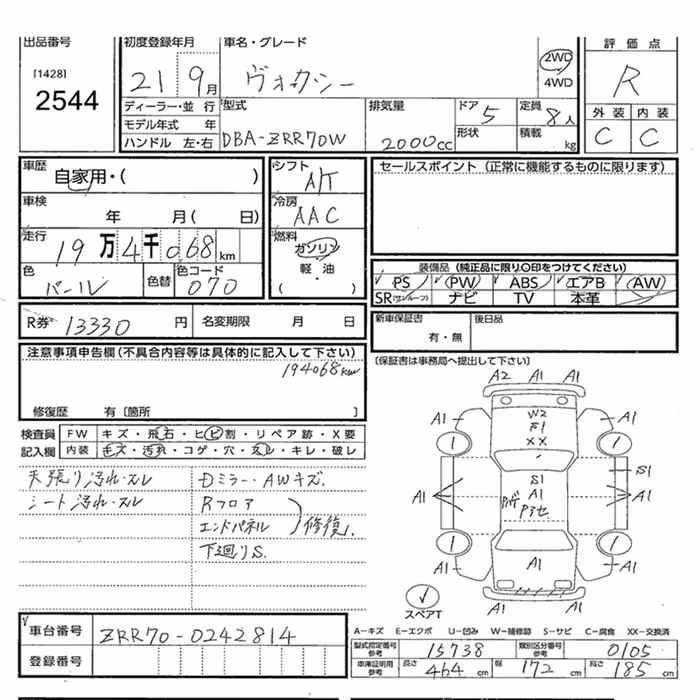 出品番号
[1428]
2544
初度登録年月
21 9月
車名・グレード
ヴォクシー
2WD
4WD
評価点
R
外装 内装
C C
ディーラー・並行
モデル年式 年
ハンドル 左・右
型式
DBA-ZRR70W
排気量
2000cc
ドア 5
形状
定員 8人
積載 kg
車歴
自家用・( )
車検
年 月( 日)
走行
19万4千068km
色
パール
色替
色コード
070
シフト
A/T
冷房
AAC
燃料
ガソリン
軽・油
( )
セールスポイント (正常に機能するものに限ります)
装備品 (純正品に限り〇印をつけてください)
PS PW ABS エアB AW
SR(サンルーフ) ナビ TV 本革
R券 13330 円 名変期限 月 日
新車保証書
有・無
後日品
(保証書は事務局へ提出して下さい)
注意事項申告欄(不具合内容等は具体的に記入して下さい)
194068km
修復歴 有〔箇所 〕
検査員
記入欄
FW キズ・飛石・ヒビ割・リペア跡・X要
内装 キズ・汚れ・コゲ・穴・スレ・キレ・破レ
天張り汚れ・スレ
シート汚れ・スレ
Dミラー・AWキズ.
Rフロア
エンドパネル
修復.
下廻りS.
A2 A1 A1
W2
F1
XX
A1 A1
S1
A1
S1
A1 A1
A1
A1 A1
A1
スペアT
車台番号 ZRR70-0242814
登録番号
A−キズ E−エクボ U−凹み W−補修跡 S−サビ C−腐食 XX−交換済
型式指定番号
参考
15738
類別区分番号
参考
0105
車庫証明用
参考
長さ 464 cm 幅 172 cm 高さ 185 cm